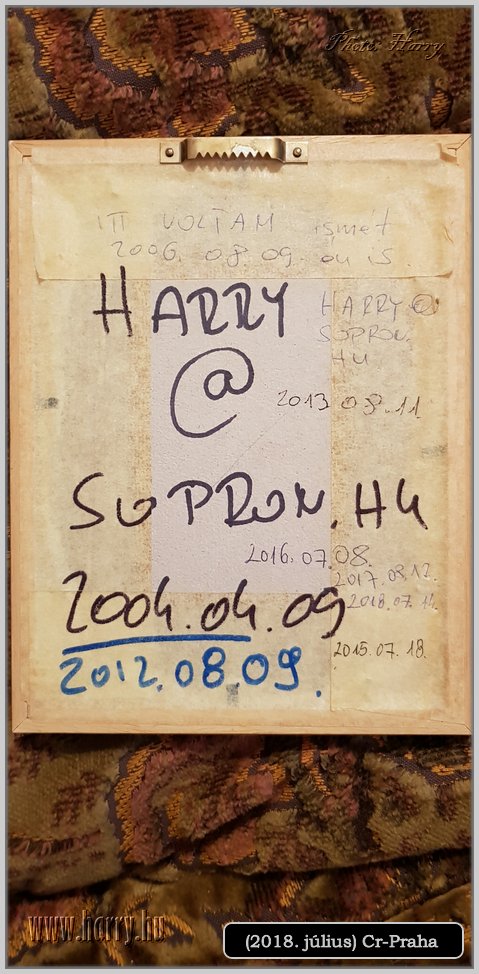 Photo: Harry
ITT VOLTAM ismét
2006. 08. 09. én is.
HARRY
@
SOPRON.HU
HARRY@
SOPRON.
HU
2013 08.11.
2016.07.08.
2017.08.12.
2018.07.14.
2004.04.09
2015.07.18.
2012.08.09.
www.harry.hu
(2018. július) Cr-Praha